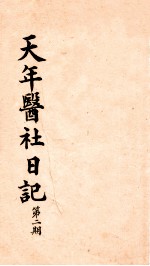 天年醫社日記
第二期